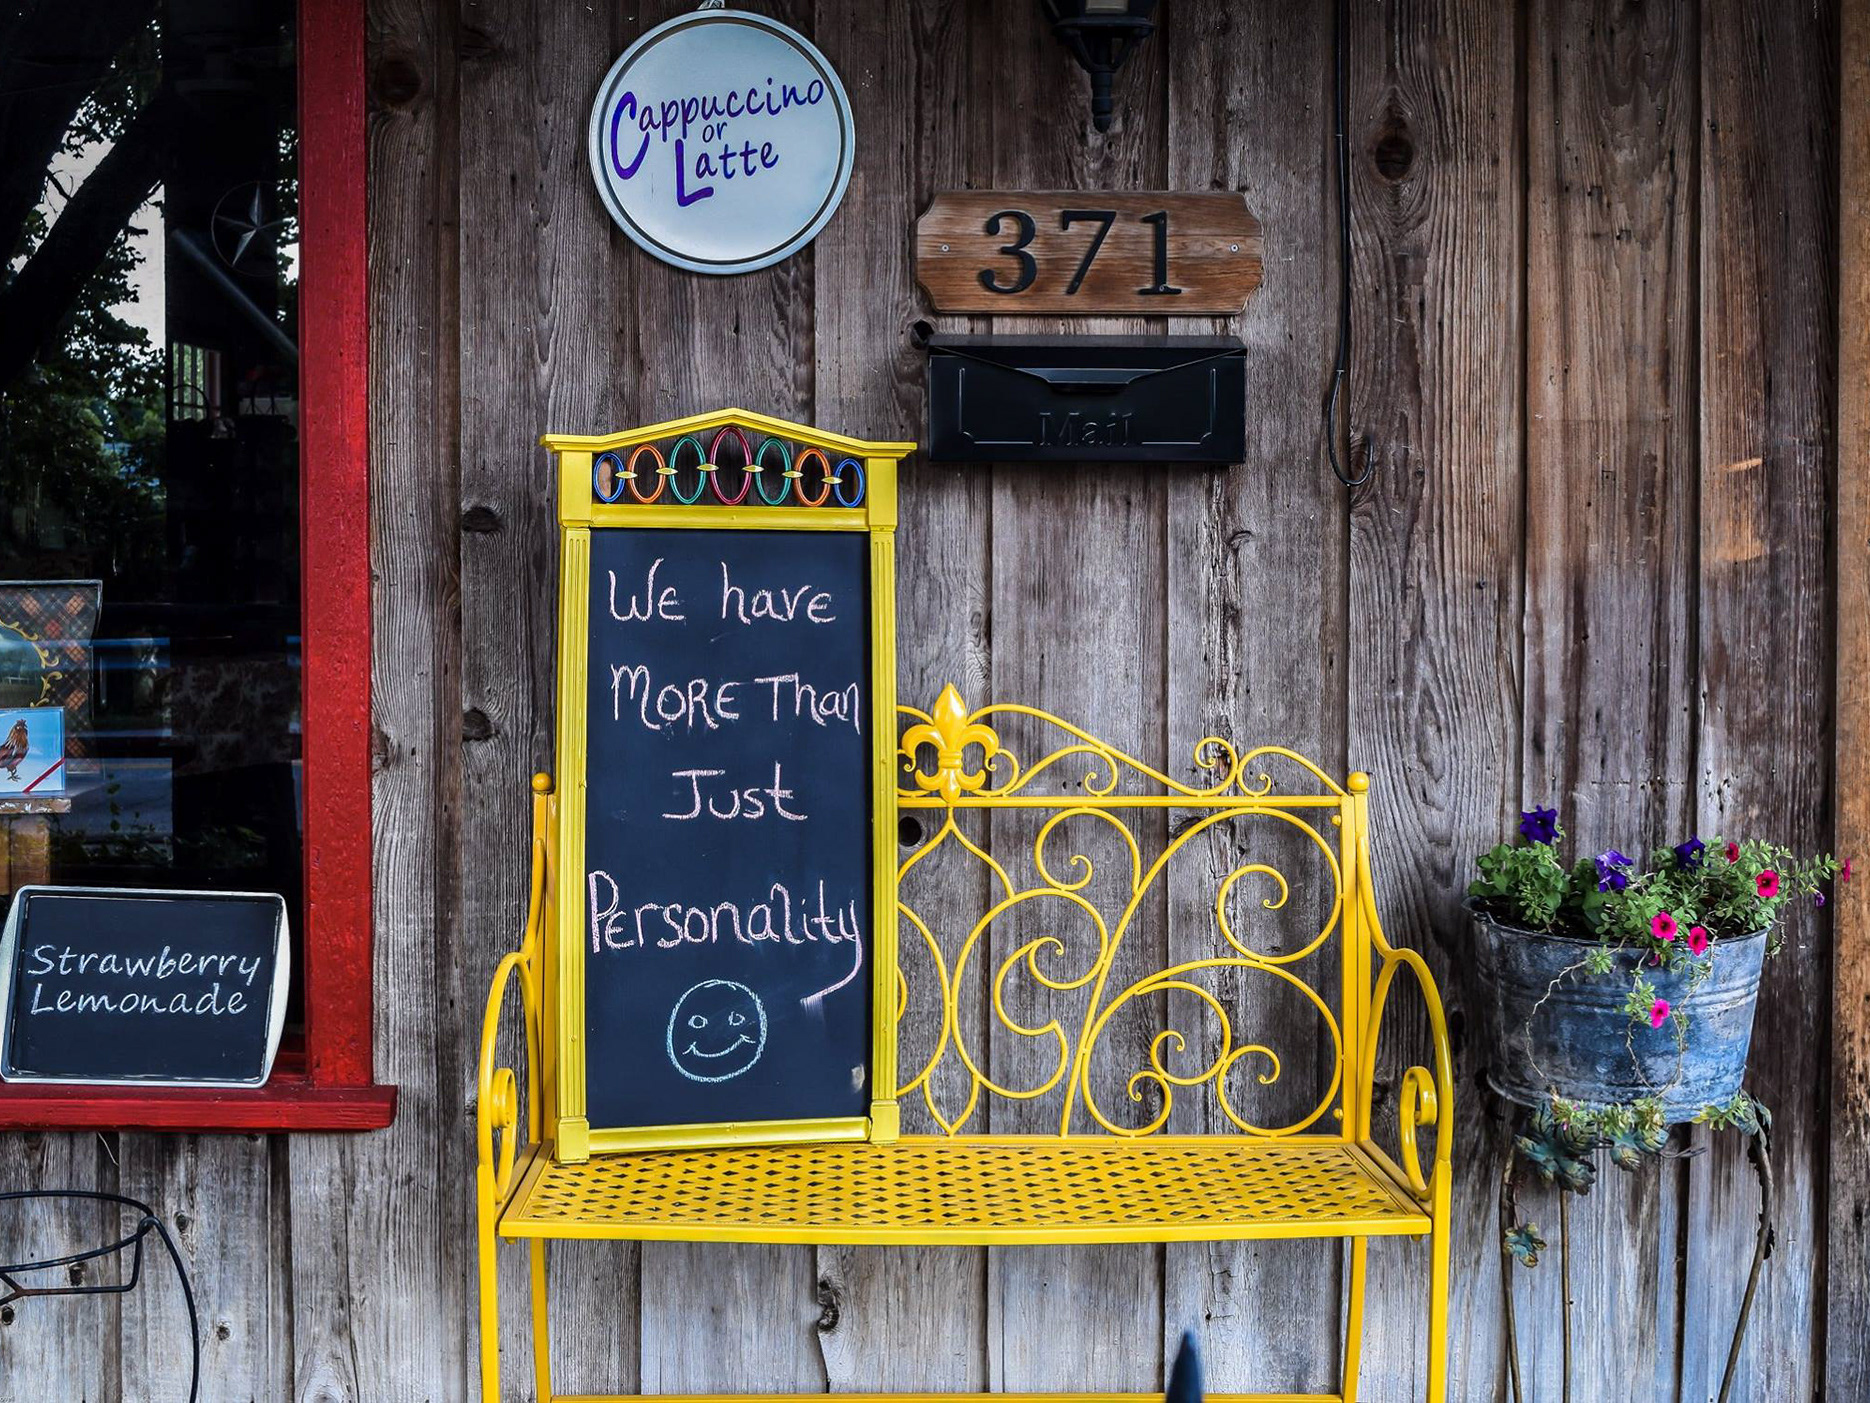 Cappuccino
or
Latte
371
Mail
We have
MORE Than
Just
Personality
Strawberry
Lemonade